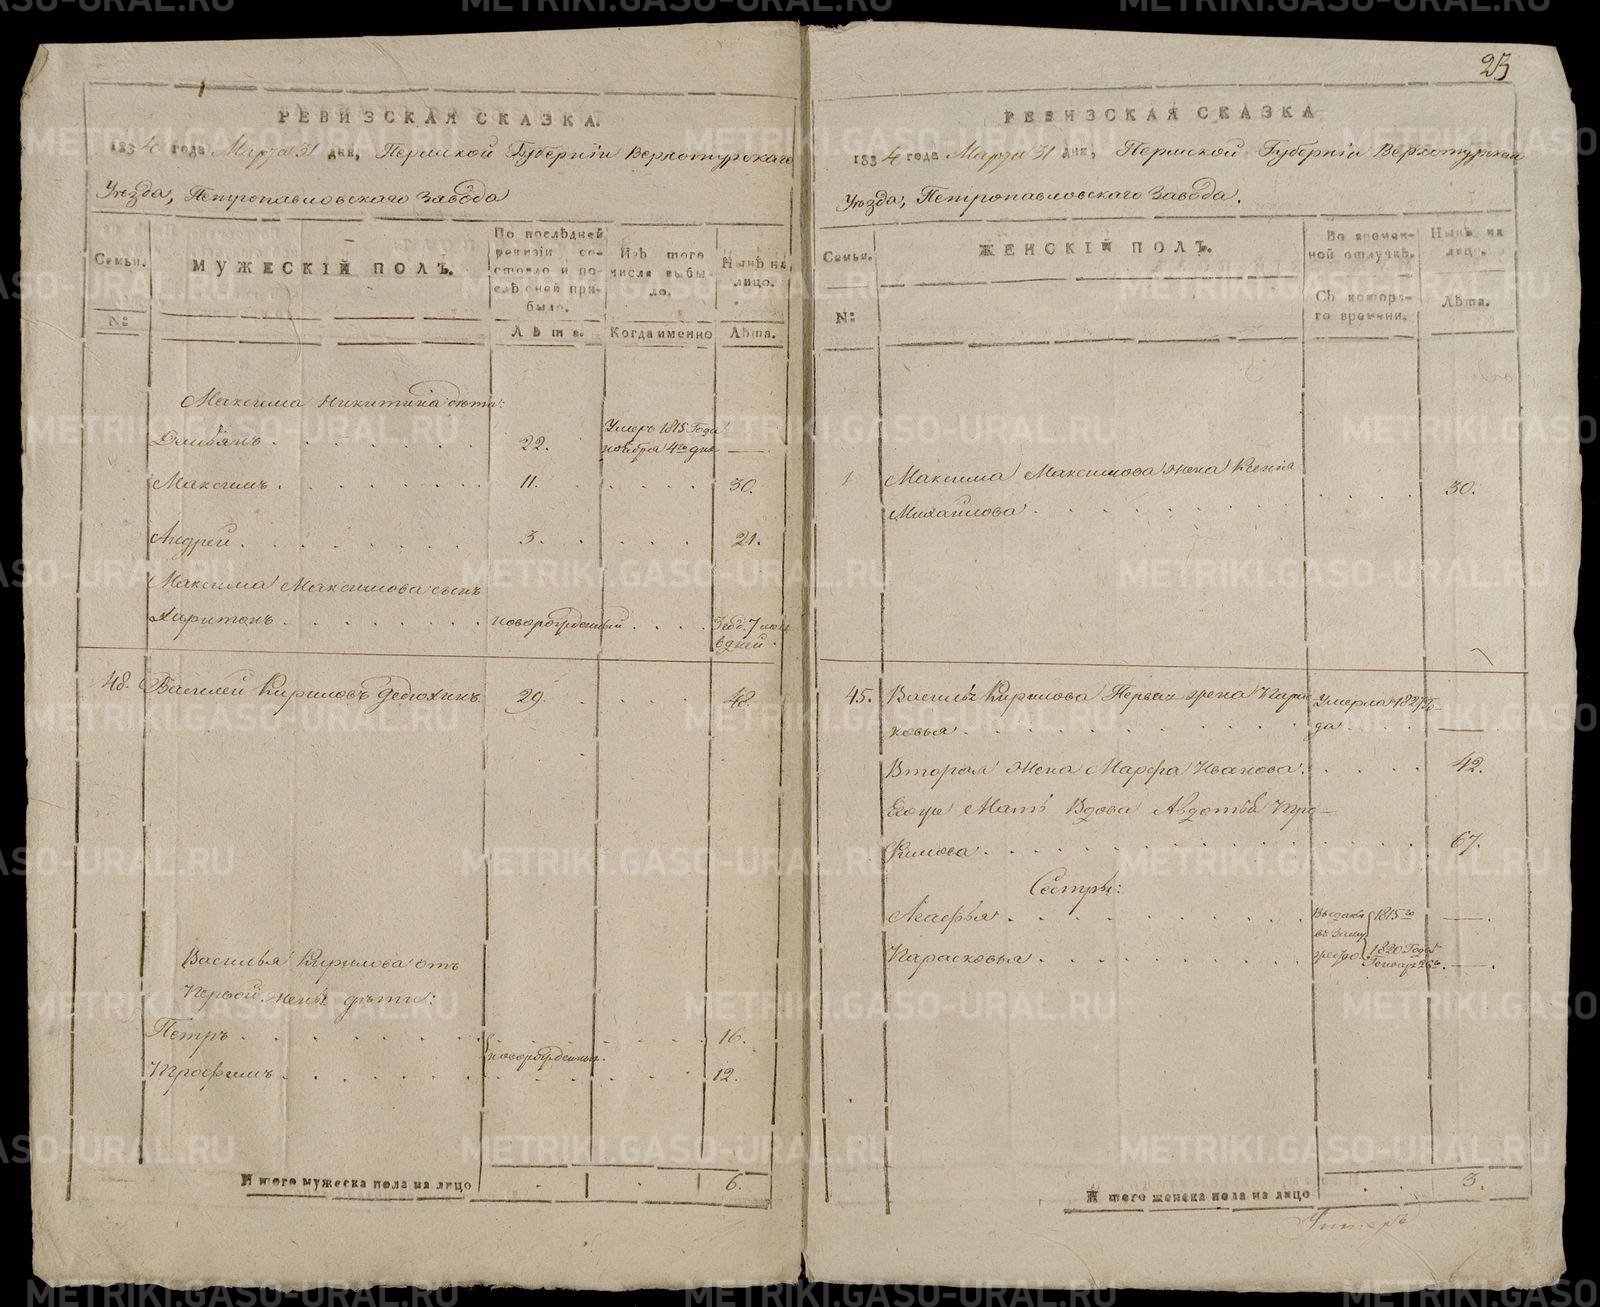 РЕВИЗСКАЯ СКАЗКА.
1834 года Марта 31 дня, Пермской Губерніи Верхотурскаго
Уѣзда, Петропавловскаго Завода
Семьи.
№:
МУЖЕСКІЙ ПОЛЪ.
По послѣдней
ревизіи со-
стояло и по-
слѣ оней при-
было.
Лѣта.
Изъ того
числа выбы-
ло.
Когда именно
Нынѣ на
лицо.
Лѣта.
Максима Никитина дѣти:
Демьянъ. 22. Умеръ 1815 Года ноября 4го дня —
Максимъ. 11. 30.
Андрей. 3. 21.
Максима Максимова сынъ
Харитонъ. новорожденный
48. Василей Кириловъ 29. 48.
Василья Кирилова отъ
первой жены дѣти:
Петръ. 16.
новорожденные.
Трофимъ. 12.
Итого мужеска пола на лицо 6.
23
РЕВИЗСКАЯ СКАЗКА
1834 года Марта 31 дня, Пермской Губерніи Верхотурскаго
Уѣзда, Петропавловскаго Завода.
Семьи.
№:
ЖЕНСКІЙ ПОЛЪ.
Во времен-
ной отлучкѣ.
Съ которо-
го времени.
Нынѣ на
лицо.
Лѣта.
Максима Максимова жена Ксенія
Михайлова. 30.
45. Василья Кирилова Первая жена Парас
ковья. Умерла —
Вторая жена Марфа Иванова. 42.
Его же Мать Вдова Авдотья Тро-
фимова. 67.
Сестры:
Агафья. 1815го —
Парасковья. 1820 Года —
Итого женска пола на лицо 3.
METRIKI.GASO-URAL.RU